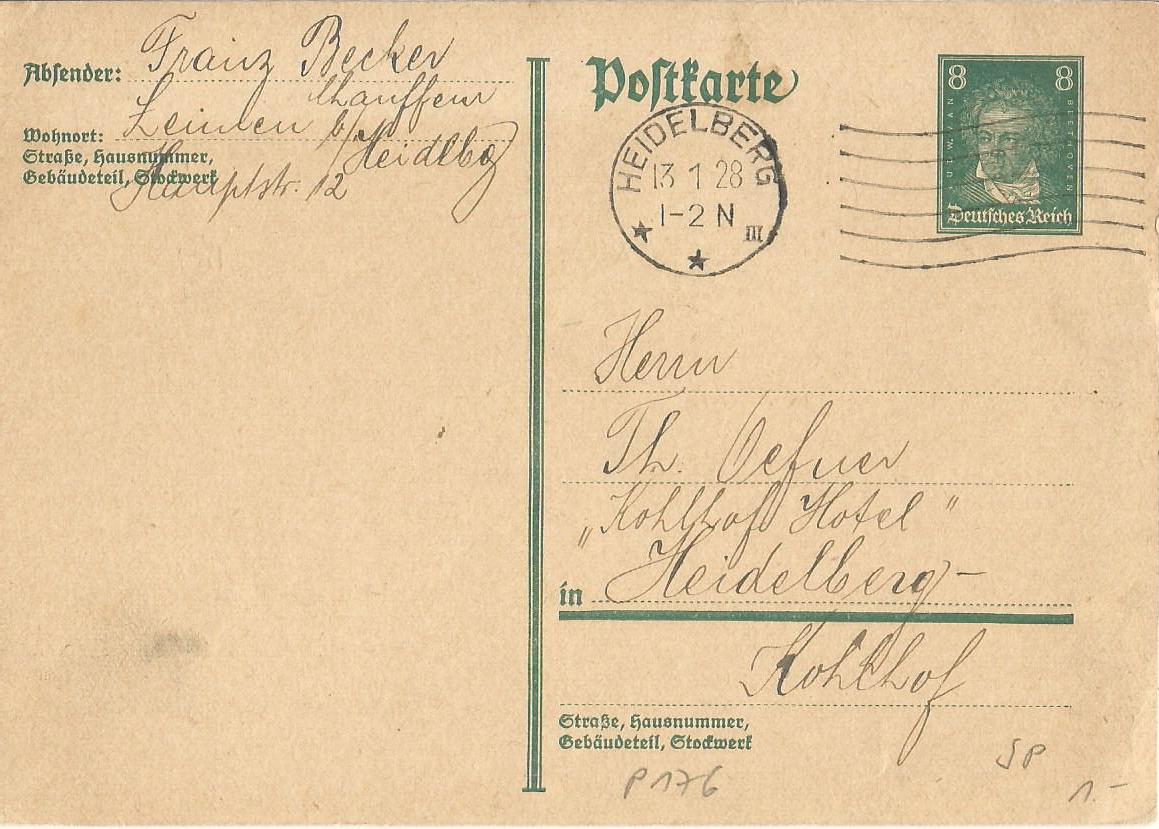 Absender: Franz Becker
Chauffeur
Wohnort: Leimen b/
Heidelbg
Straße, Hausnummer,
Gebäudeteil, Stockwerk
Hauptstr. 12
Postkarte
HEIDELBERG
13 1 28
1-2 N
III
8 8
LUDW. VAN
BEETHOVEN
Deutsches Reich
Herrn
Th. Oefner
„Kohlhof Hotel"
in Heidelberg-
Kohlhof
Straße, Hausnummer,
Gebäudeteil, Stockwerk
P 176
SP
1.-